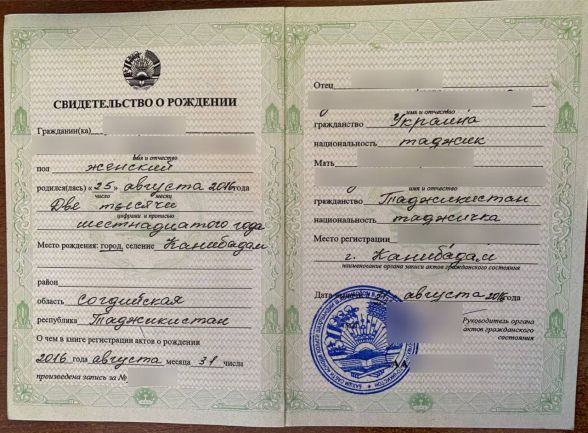 СВИДЕТЕЛЬСТВО О РОЖДЕНИИ
Гражданин(ка)
имя и отчество
пол женский
родился(лась) «25» августа 2016 года
число месяц
Две тысячи
цифрами и прописью
шестнадцатого года
Место рождения: город, селение Канибадам
район
область Согдийская
республика Таджикистан
О чем в книге регистрации актов о рождении
2016 года августа месяца 31 числа
произведена запись за №
Отец
имя и отчество
гражданство Украина
национальность таджик
Мать
имя и отчество
гражданство Таджикистан
национальность таджичка
Место регистрации
г. Канибадам
наименование органа записи актов гражданского состояния
Дата августа 2016 года
Руководитель органа
актов гражданского
состояния